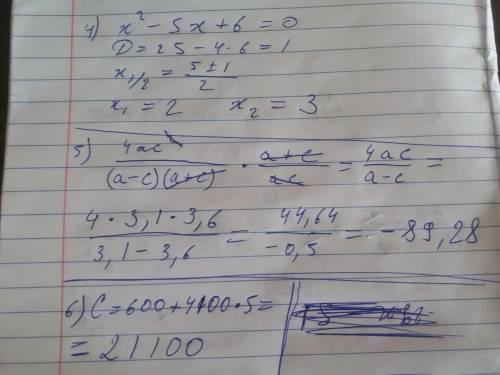 4) x² - 5x + 6 = 0
D = 25 - 4·6 = 1
x₁/₂ = (5 ± 1)/2
x₁ = 2 x₂ = 3
5) 4ac/((a-c)(a+c)) · (a+c)/(ac) = 4ac/(a-c) =
(4 · 3,1 · 3,6)/(3,1 - 3,6) = 44,64/(-0,5) = -89,28
6) C = 600 + 4100·5 =
= 21100